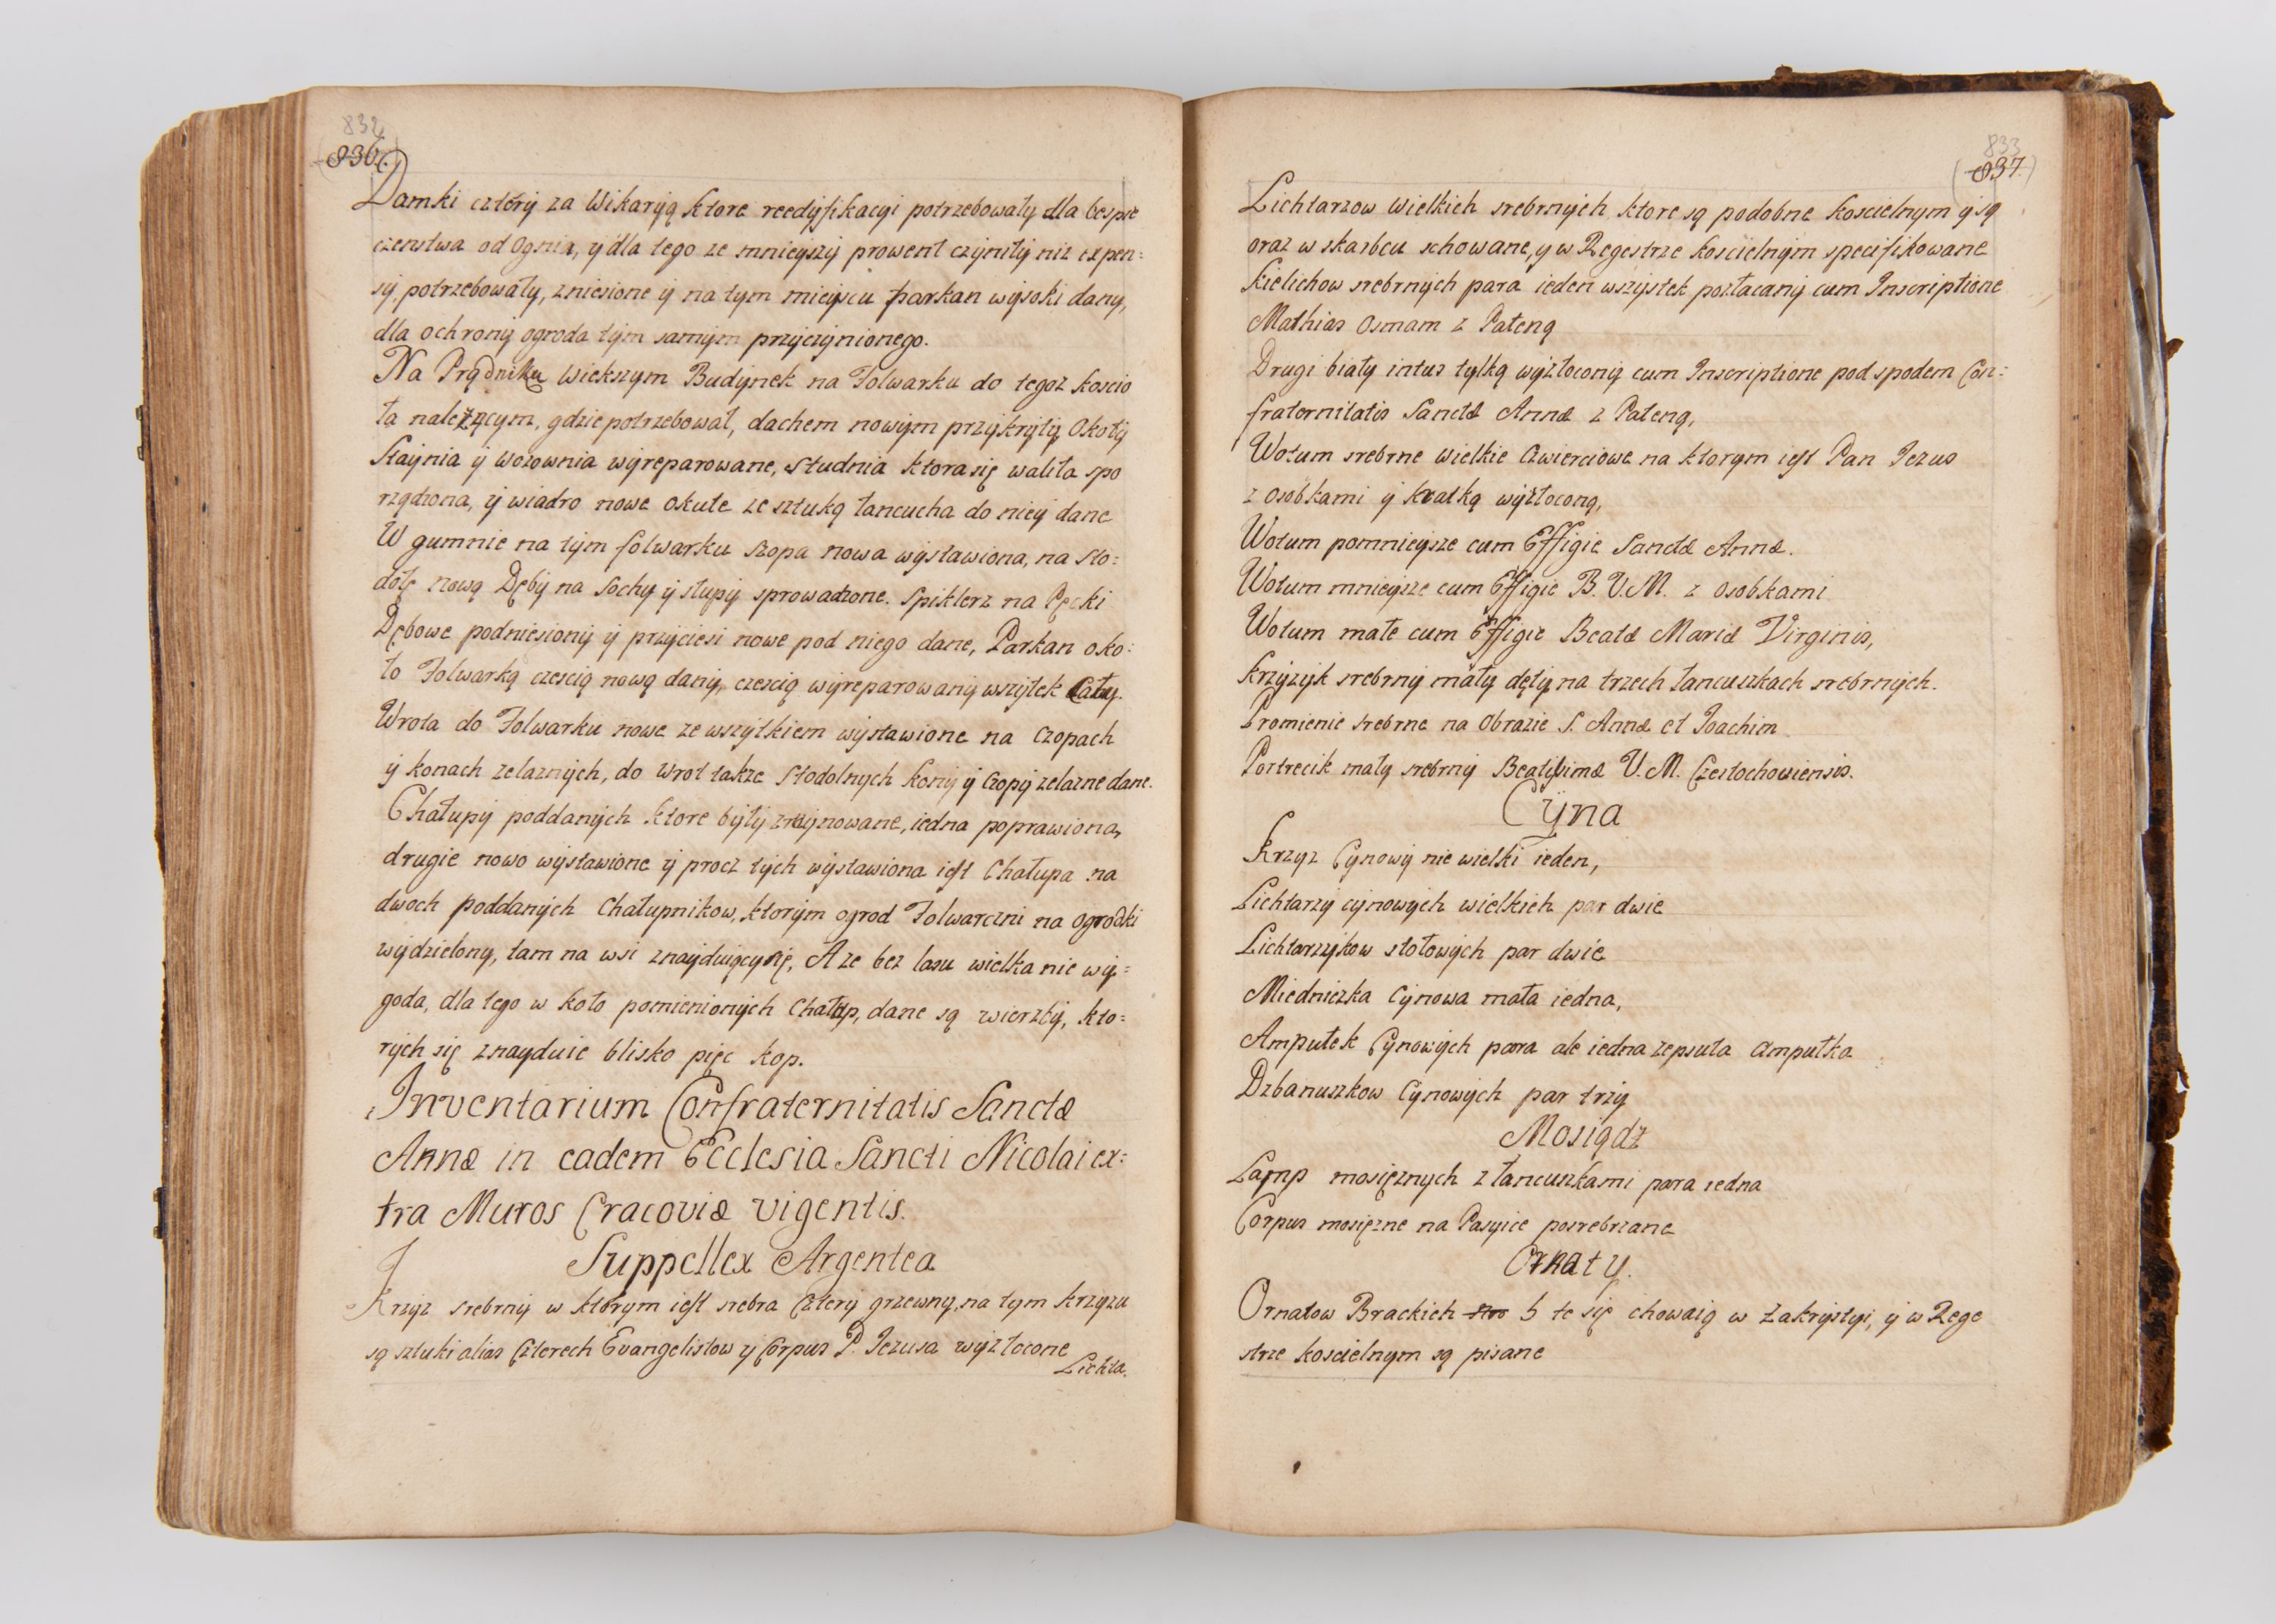 832
836.
Damki cztery za Wikaryą ktore reedyfikacyi potrzebowały dla bespie
czenstwa od Ognia, y dla tego ze mnieyszy prowent czyniły niz expen=
sy potrzebowały, zniesione y na tym mieyscu parkan wysoki dany,
dla ochrony ogroda tym samym przyczynionego.
Na Prądniku Wiekszym Budynek na Folwarku do tegoz koscio
ła należącym, gdzie potrzebował, dachem nowym przykryty Okoły
Staynia y wozownia wyreparowane, studnia ktora się waliła spo
rządzona, y wiadro nowe okute ze sztuką łancucha do niey dane
W gumnie na tym folwarku szopa nowa wystawiona, na sto=
dołę nową Dęby na Sochy y słupy sprowadzone. Spiklerz na Pęcki
Dębowe podniesiony y przyciesi nowe pod niego dane, Parkan oko=
ło Folwarką czescią nową dany, czescią wyreparowany wszytek Cały.
Wrota do Folwarku nowe ze wszytkiem wystawione na Czopach
y konach zelaznych, do wrot takze Stodolnych kony y Czopy zelazne dane.
Chałupy poddanych ktore były zruynowane, iedna poprawiona,
drugie nowo wystawione y procz tych wystawiona iest Chałupa na
dwoch poddanych Chałupnikow, ktorym ogrod Folwarczni na ogrodki
wydzielony, tam na wsi znayduiący się, A ze bez lasu wielka nie wy=
goda, dla tego w koło pomienionych Chałup, dane są wierzby, kto=
rych się znayduie blisko pięc kop.
Inventarium Confraternitatis Sanctæ
Annæ in eadem Ecclesia Sancti Nicolai ex=
tra Muros Cracoviæ vigentis.
Suppellex Argentea
Krzyz srebrny w ktorym iest srebra Cztery grzewny, na tym krzyzu
są sztuki alias Czterech Evangelistow y Corpus P. Jezusa wyzłocone
Lichta.
833
(837.)
Lichtarzow wielkich srebrnych ktore są podobne koscielnym y są
oraz w skarbcu schowane, y w Regestrze koscielnym specifikowane
Kielichow srebrnych para ieden wszystek pozłacany cum Inscriptione
Mathias Osmam z Pateną
Drugi biały intus tylką wyzłocony cum Inscriptione pod spodem Con=
fraternitatis Sanctæ Annæ z Pateną,
Wotum srebrne wielkie Cwierciowe na ktorym iest Pan Jezus
z osobkami y kratką wyzłoconą,
Wotum pomnieysze cum Effigie Sanctæ Annæ.
Wotum mnieysze cum Effigie B. V. M. z osobkami
Wotum małe cum Effigie Beatæ Mariæ Virginis,
krzyzyk srebrny mały dęty na trzech łancuszkach srebrnych.
Promienie srebrne na Obrazie S. Annæ et Joachim
Portrecik mały srebrny Beatissimæ V. M. Częstochoviensis.
Cyna
Krzyz Cynowy nie wielki ieden,
Lichtarzy cynowych wielkich par dwie
Lichtarzykow stołowych par dwie
Miedniczka Cynowa mała iedna,
Ampułek Cynowych para ale iedna zepsuta ampułka
Dzbanuszkow Cynowych par trzy
Mosiądz
Lamp mosięznych z łancuszkami para iedna
Corpus mosięzne na Pasyice posrebrzane
Ornaty.
Ornatow Brackich 5 te się chowaią w Zakrystyi, y w Rege
strze koscielnym są pisane